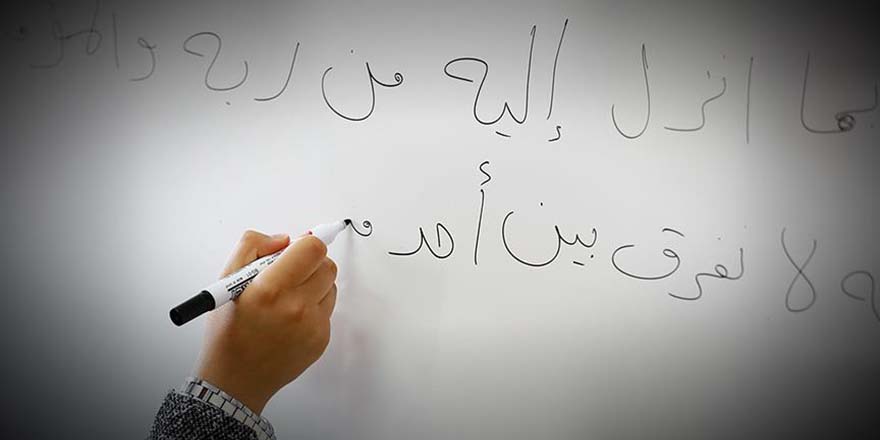 بما انزل إليه من ربه والمؤ
ه لا نفرق بين أحد م